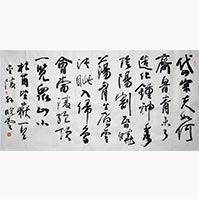 岱宗夫如何
齊魯青未了
造化鍾神秀
陰陽割昏曉
決眦入歸鳥
會當凌絕頂
一覽眾山小
杜甫望嶽一首